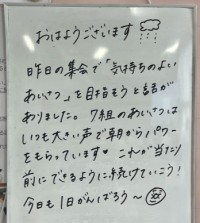 おはようございます
昨日の集会で「気持ちのよい
あいさつ」を目指そうと話が
ありました。7組のあいさつは
いつも大きい声で朝からパワー
をもらっています♥ これが当たり
前にできるように続けていこう!
今日も1日がんばろう〜